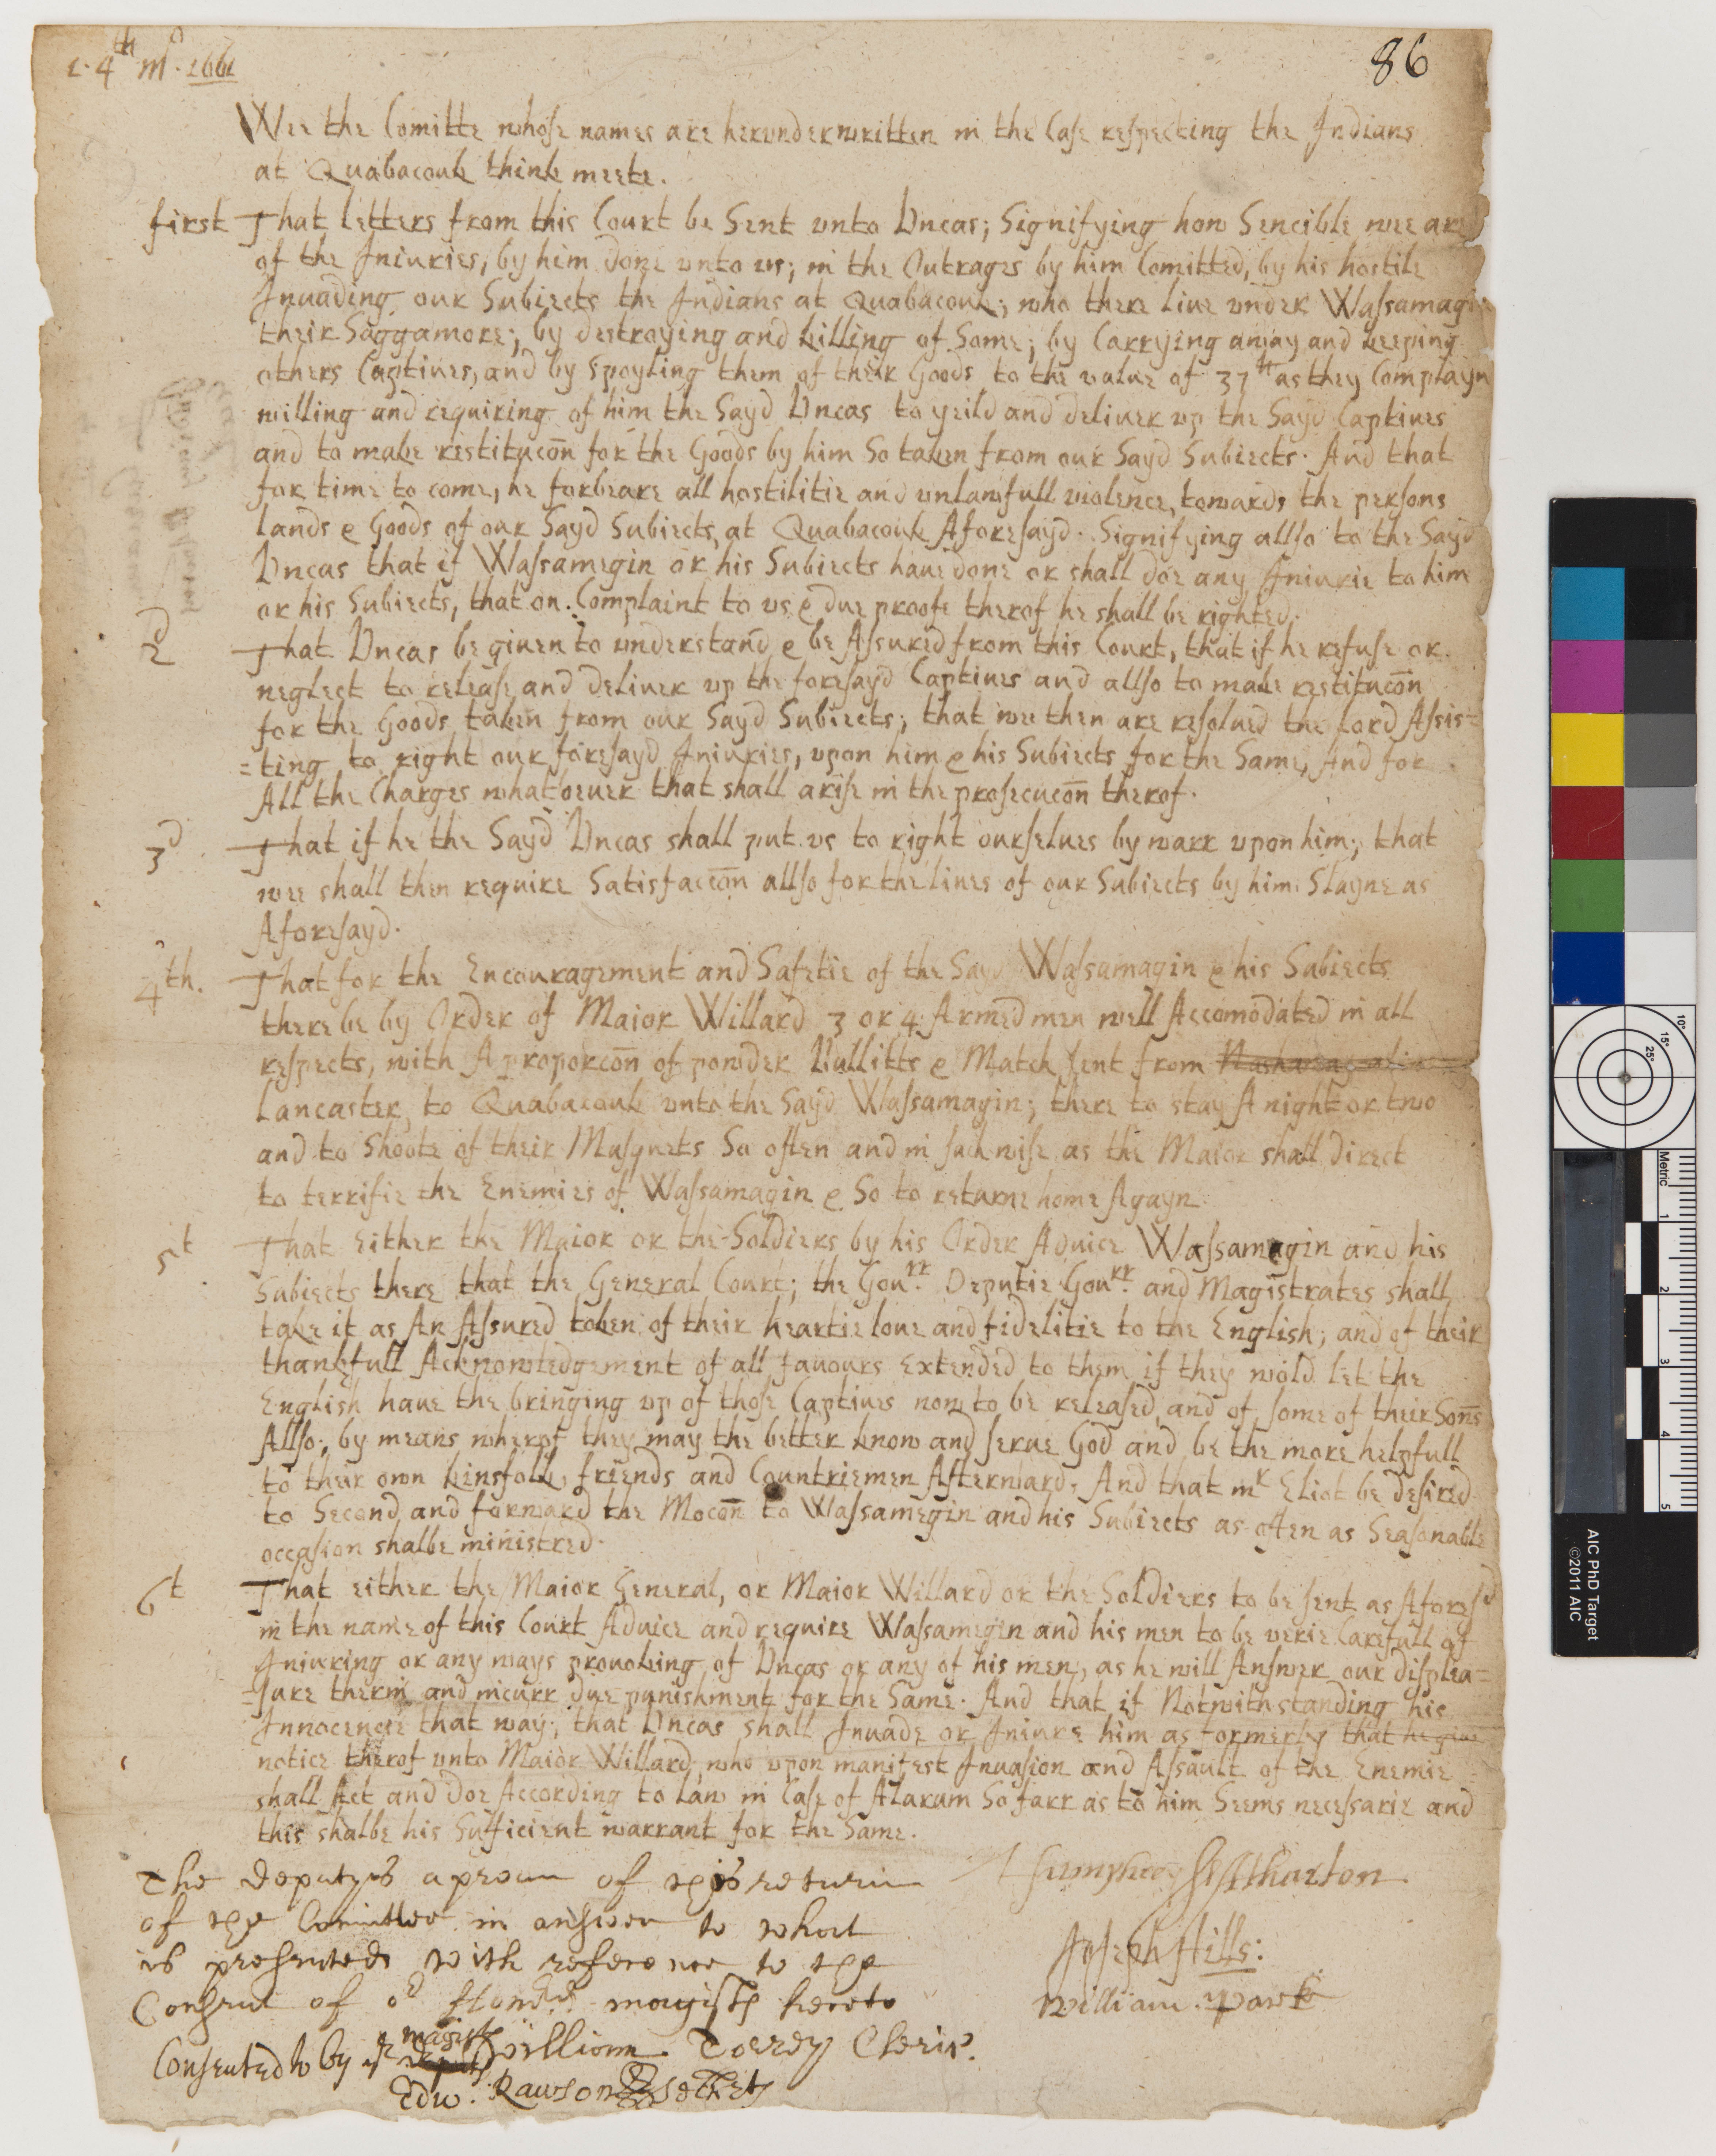 1. 4th mo. 1661
86
Wee the Comitte whose names are herunderwritten in the Case respecting the Indians
at Quabacouk think meete.
first That letters from this Court be Sent vnto Vncas; Signifying how Sencible wee are
of the Iniuries, by him done vnto vs; in the Outrages by him Comitted, by his hostile
Inuading our Subiects the Indians at Quabacouk; who there liue vnder Wassamagin
their Saggamore; by destroying and killing of Some; by Carrying away and keeping
others Captiues, and by Spoyling them of their Goods to the value of 37 li as they Complayn
willing and requiring of him the Sayd Vncas to yeild and deliuer vp the Sayd Captiues
and to make restitucon for the Goods by him So taken from our Sayd Subiects. And that
for time to come, he forbeare all hostilitie and vnlawfull violence, towards the persons
Lands & Goods of our Sayd Subiects, at Quabacouk Aforesayd. Signifying allso to the Sayd
Vncas that if Wassamegin or his Subiects haue done or shall doe any Iniurie to him
or his Subiects, that on Complaint to vs & due proofe therof he shall be righted.
2d That Vncas be giuen to vnderstand & be Assured from this Court, that if he refuse or
neglect to release and deliuer vp the foresayd Captiues and allso to make restitucon
for the Goods taken from our Sayd Subiects; that wee then are resolued the lord Assis=
=ting to right our foresayd Iniuries, vpon him & his Subiects for the Same, And for
All the Charges whatoeuer that shall arise in the prosecucon therof.
3d That if he the Sayd Vncas shall put vs to right ourselues by warr vpon him; that
wee shall then require Satisfaccon allso for the liues of our Subiects by him Slayne as
Aforesayd.
4th. That for the Encouragement and Safetie of the Sayd Wassamagin & his Subiects
there be by Order of Maior Willard 3 or 4 Armed men well Accomodated in all
respects, with A proporcon of powder Bullitts & Match sent from
Lancaster, to Quabacouk vnto the Sayd Wassamagin; there to stay A night or two
and to Shoote of their Musquets So often and in such wise as the Maior shall direct
to terrifie the Enemies of Wassamagin & So to returne home Agayn.
5t That Either the Maior or the Soldiers by his Order Aduice Wassamegin and his
Subiects there that the General Court; the Gourr. Deputie Gourr. and Magistrates shall
take it as An Assured token of their heartie loue and fidelitie to the English; and of their
thankfull Acknowledgement of all fauours Extended to them if they wold let the
English haue the bringing vp of those Captiues now to be released, and of some of their Sons
Allso; by means wherof they may the better know and serue God and be the more helpfull
to their own kinsfolk, friends and Countriemen Afterward, And that mr Eliot be desired
to Second and forward the Mocon to Wassamegin and his Subiects as often as Seasonable
occasion shalbe ministred.
6t That either the Maior General, or Maior Willard or the Soldiers to be sent as Aforesd
in the name of this Court Aduice and require Wassamegin and his men to be verie Carefull of
Iniuring or any ways prouoking of Vncas or any of his men, as he will Answer our displea=
=sure therin and incurr due punishment for the Same. And that if Notwithstanding his
Innocencie that way; that Vncas shall Inuade or Iniure him as formerly that he giue
notice therof vnto Maior Willard, who vpon manifest Inuasion and Assault of the Enemie
shall Act and doe According to law in Case of Alarum So farr as to him Seems necessarie and
this shalbe his Sufficient warrant for the Same.
The deputyes aproue of this returne
of the Comittee in answer to what
is presented with reference to the
Consent of or Honrd magists hereto
William Torrey Cleric.
Consented to by ye magists
Edw: Rawson Secrety
Humphrey Atharton
Joseph Hills:
William Parke
AIC PhD Target
©2011 AIC
Metric
1
2
3
4
5
10°
15°
25°